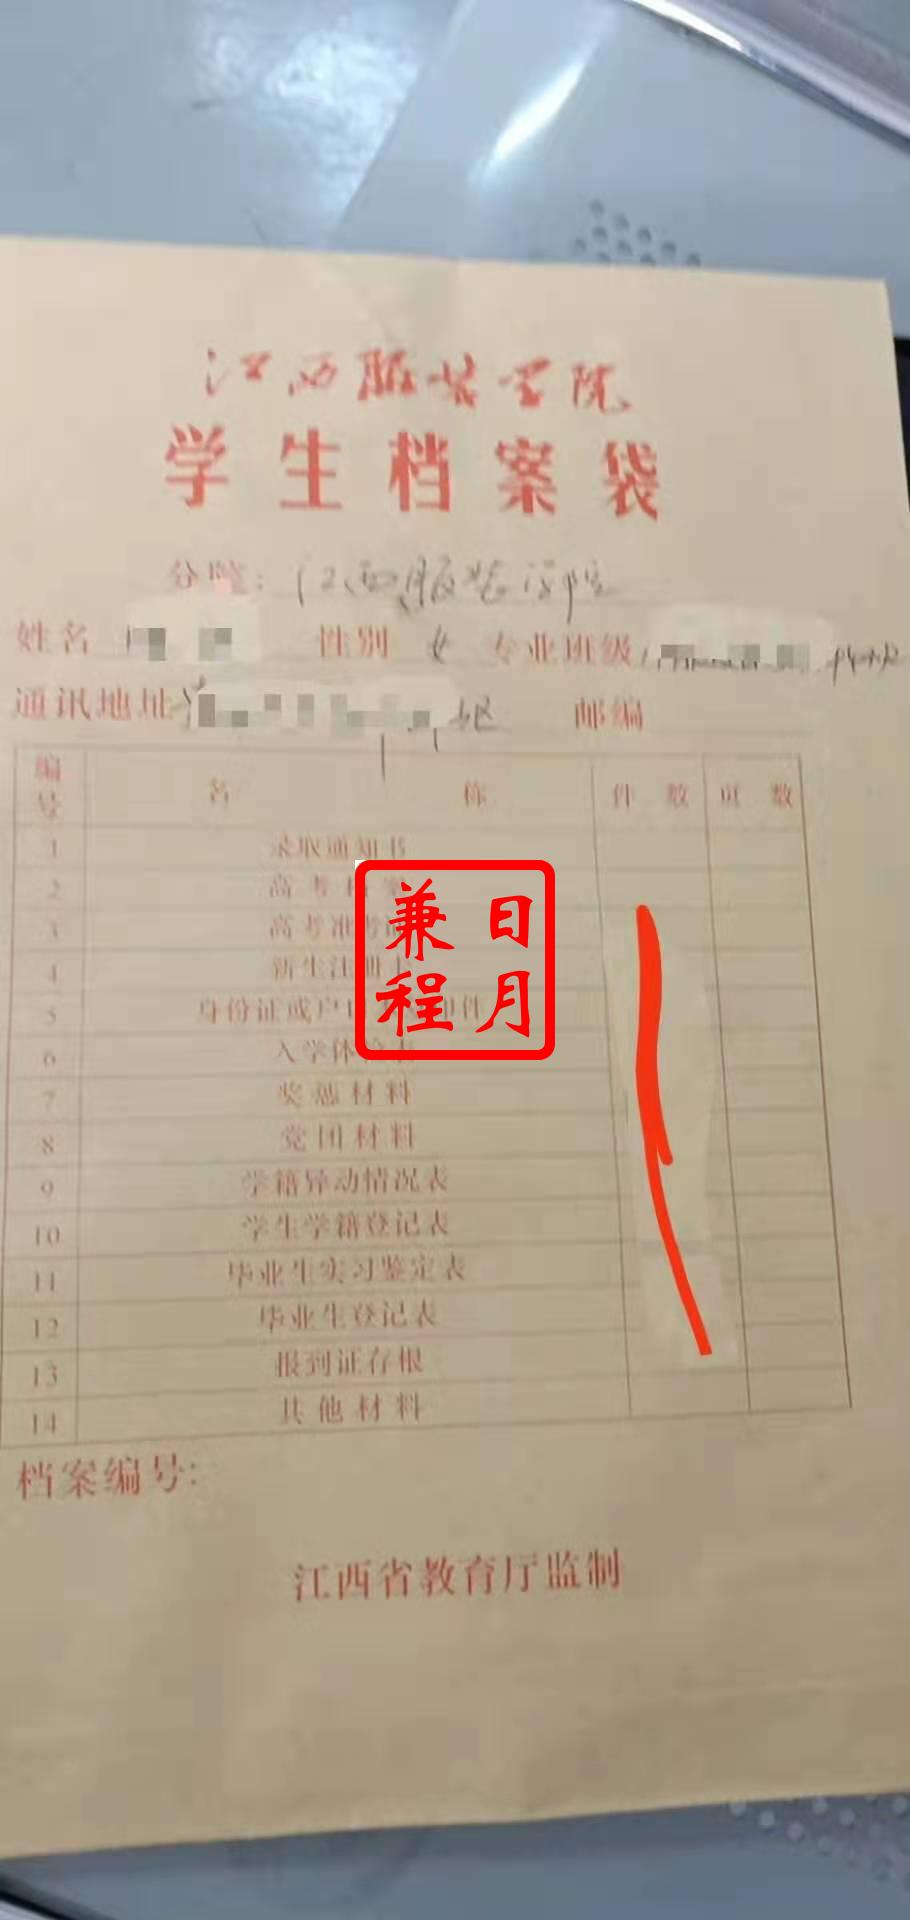 江西服装学院
学生档案袋
分院：江西服装学院
姓名 性别 女 专业班级
通讯地址 区 邮编
编号 名称 件数 页数
1 录取通知书
2 高考档案
3 高考准考证
4 新生注册卡
5 身份证或户口 印件
6 入学体检表
7 奖惩材料
8 党团材料
9 学籍异动情况表
10 学生学籍登记表
11 毕业生实习鉴定表
12 毕业生登记表
13 报到证存根
14 其他材料
日月兼程
档案编号：
江西省教育厅监制